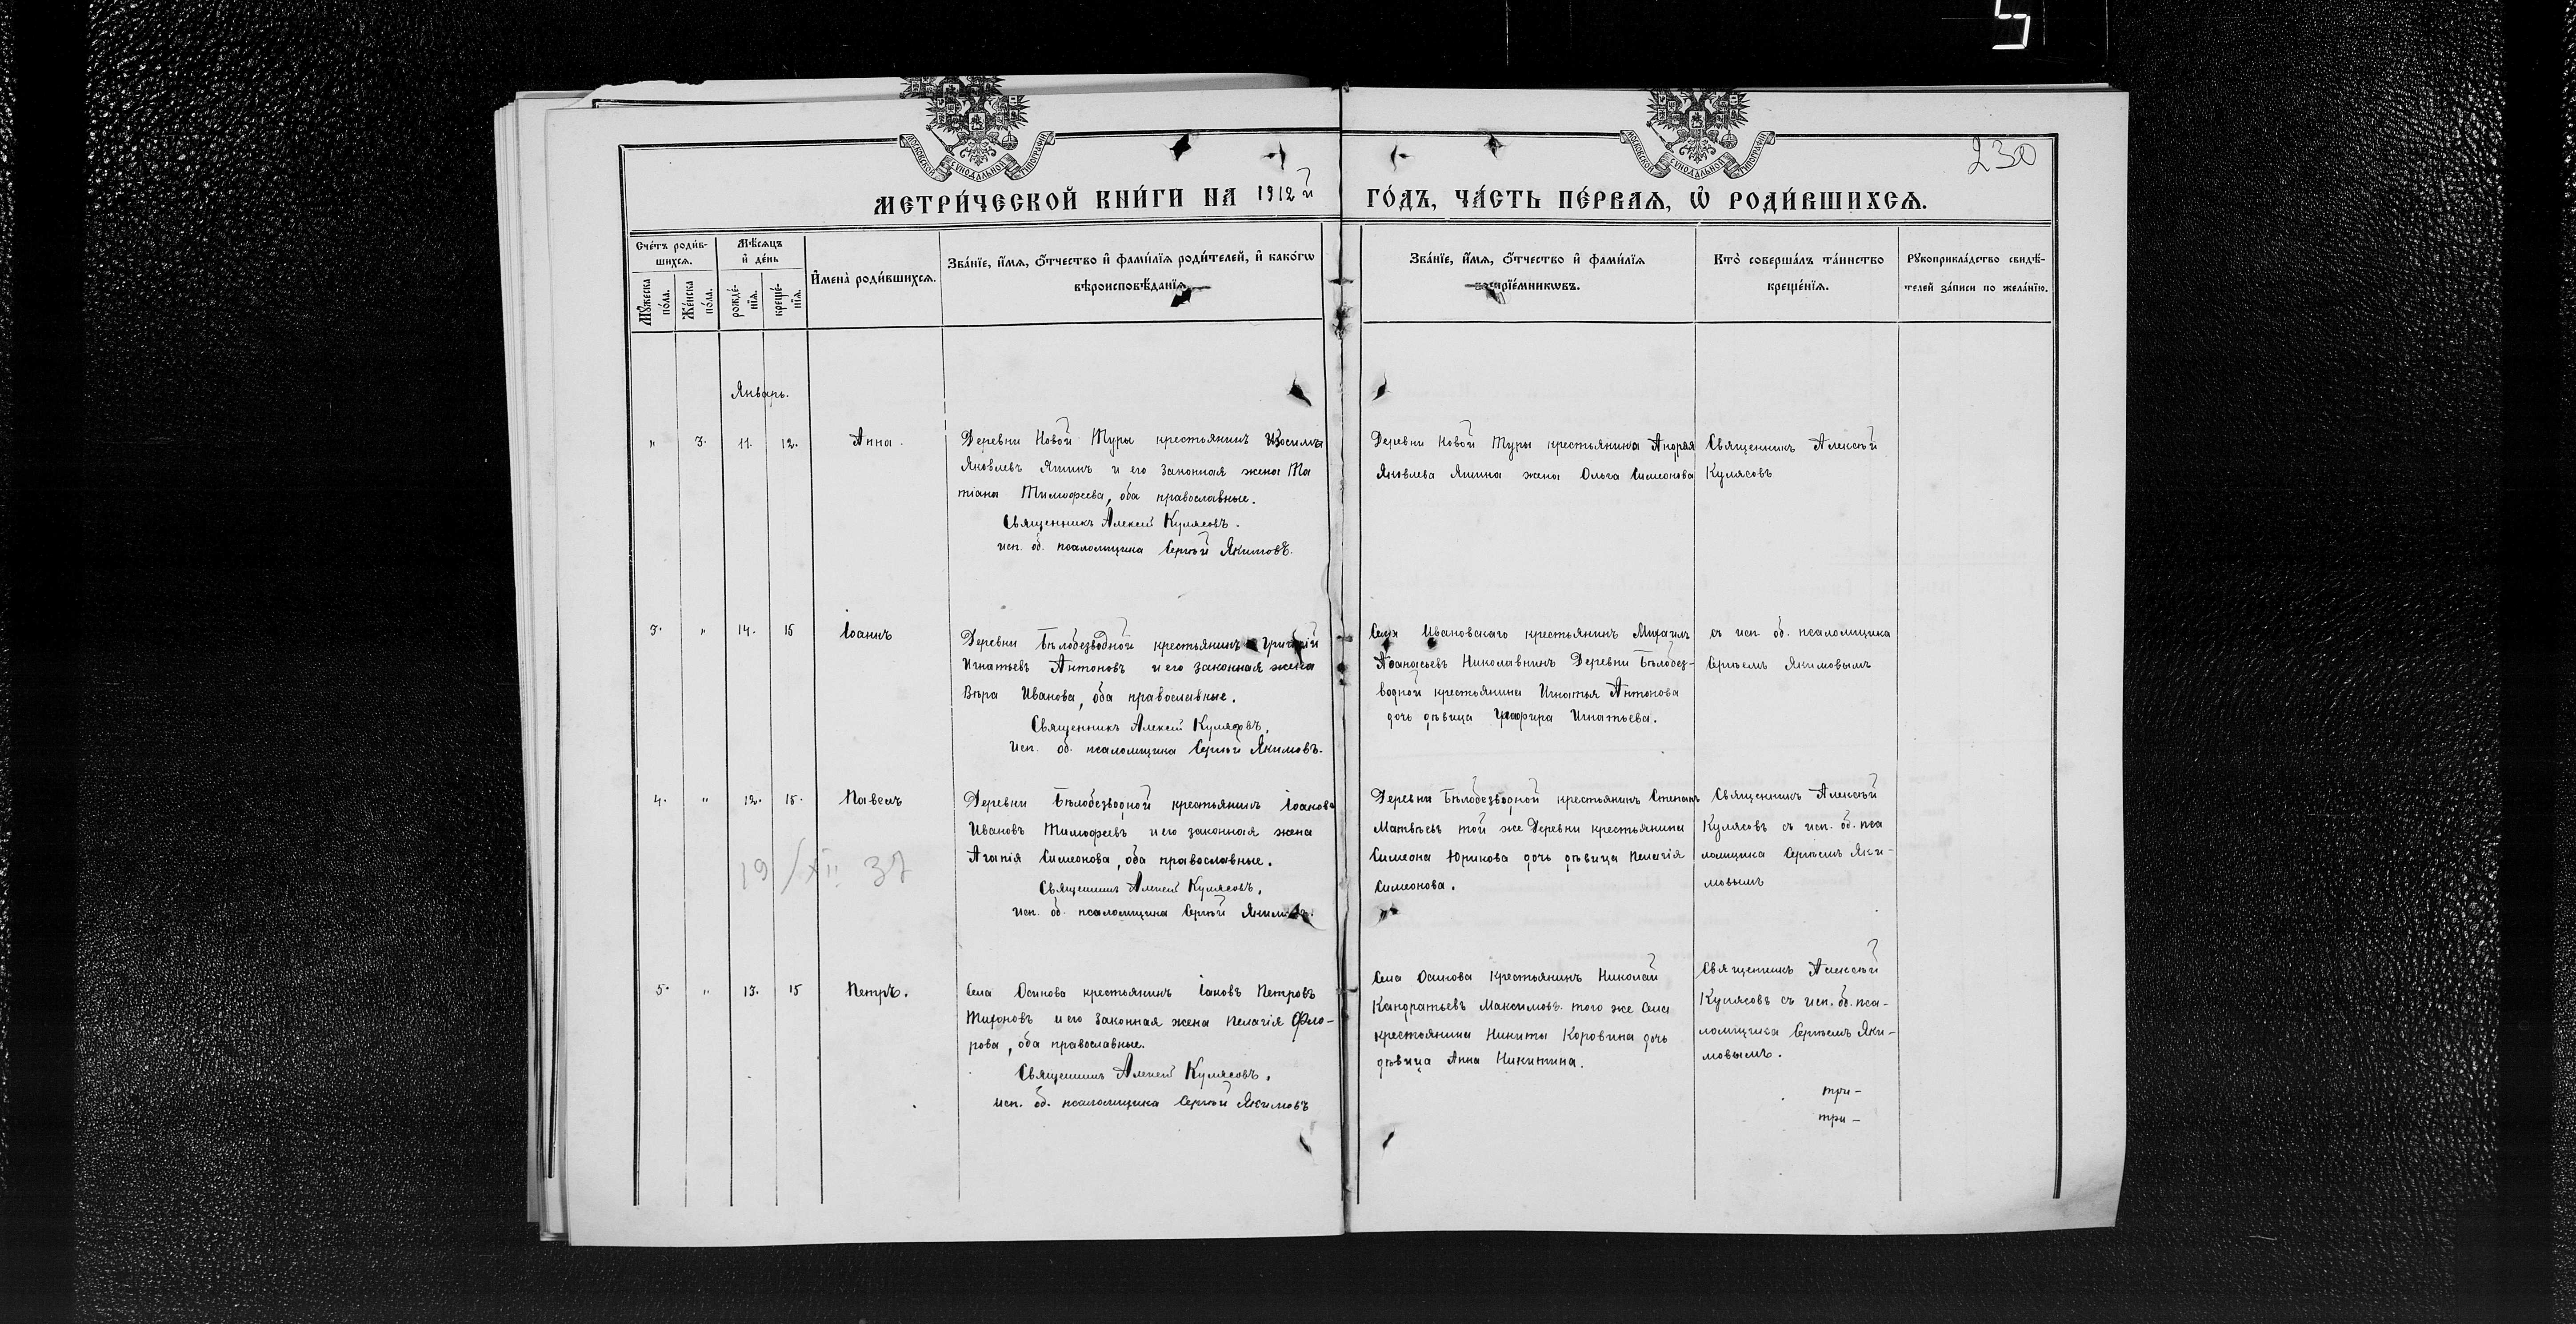 5
МОСКОВСКОЙ СѴНОДАЛЬНОЙ ТИПОГРАФІИ
МОСКОВСКОЙ СѴНОДАЛЬНОЙ ТИПОГРАФІИ
230
МЕТРИ́ЧЕСКОЙ КНИ́ГИ НА 1912й ГО́ДЪ, ЧА́СТЬ ПЕ́РВАѦ, Ѡ҆ РОДИ́ВШИХСѦ.
Сче́тъ роди́в-
шихсѧ.
Мꙋ́жеска
по́ла.
Же́нска
по́ла.
Мѣ́сѧцъ
и҆ де́нь
рожде́-
нїѧ.
креще́-
нїѧ.
И҆мена̀ роди́вшихсѧ.
Зва́нїе, и҆́мѧ, ѻ҆́тчество и҆ фами́лїѧ роди́телей, и҆ како́гѡ
вѣроисповѣ́данїѧ.
Зва́нїе, и҆́мѧ, ѻ҆́тчество и҆ фами́лїѧ
воспрїе́мникѡвъ.
Кто̀ соверша́лъ та́инство
креще́нїѧ.
Рꙋкоприкла́дство свидѣ́-
телей за́писи по жела́нїю.
Январь.
" 3. 11. 12. Анна.
Деревни Новой Туры крестьянинъ
Яковлевъ Яшинъ и его законная жена Та
тіана Тимофеева, оба православные.
Священникъ Алексій Кулясовъ.
исп. об. псаломщика Сергѣй Якимовъ.
Деревни Новой Туры крестьянина Андрея
Яковлева Яшина жена Ольга Симеонова
Священникъ Алексѣй
Кулясовъ
3. " 14. 15 Іоаннъ
Деревни Бѣлобезводной крестьянинъ Григорій
Игнатьевъ Антоновъ и его законная жена
Вѣра Иванова, оба православные.
Священникъ Алексій Кулясовъ.
Исп. об. псаломщика Сергѣй Якимовъ.
Села Ивановскаго крестьянинъ Михаилъ
Афанасьевъ Николавнинъ Деревни Бѣлобез-
водной крестьянина Игнатья Антонова
дочь дѣвица Игнатьева.
съ исп. об. псаломщика
Сергѣемъ Якимовымъ
4. " 12. 15. Павелъ
Деревни Бѣлобезводной крестьянинъ
Ивановъ Тимофеевъ и его законная жена
Агапія Симеонова, оба православные.
Священникъ Алексій Кулясовъ.
исп. об. псаломщика Сергѣй Якимовъ.
19/XII 37
Деревни Бѣлобезводной крестьянинъ Степанъ
Матвѣевъ той же Деревни крестьянина
Симеона Юрикова дочь дѣвица Пелагія
Симеонова.
Священникъ Алексѣй
Кулясовъ съ исп. об. пса
ломщика Сергѣемъ Яки-
мовымъ
5. " 13. 15 Петръ.
Села Осинова крестьянинъ Іаковъ Петровъ
Тихоновъ и его законная жена Пелагія Фло-
рова, оба православные.
Священникъ Алексій Кулясовъ.
исп. об. псаломщика Сергѣй Якимовъ
Села Осинова крестьянинъ Николай
Кандратьевъ Максимовъ того же Села
крестьянина Никиты Коровина дочь
дѣвица Анна Никитина.
Священникъ Алексѣй
Кулясовъ съ исп. об. пса-
ломщика Сергѣемъ Яки-
мовымъ.
три-
три-